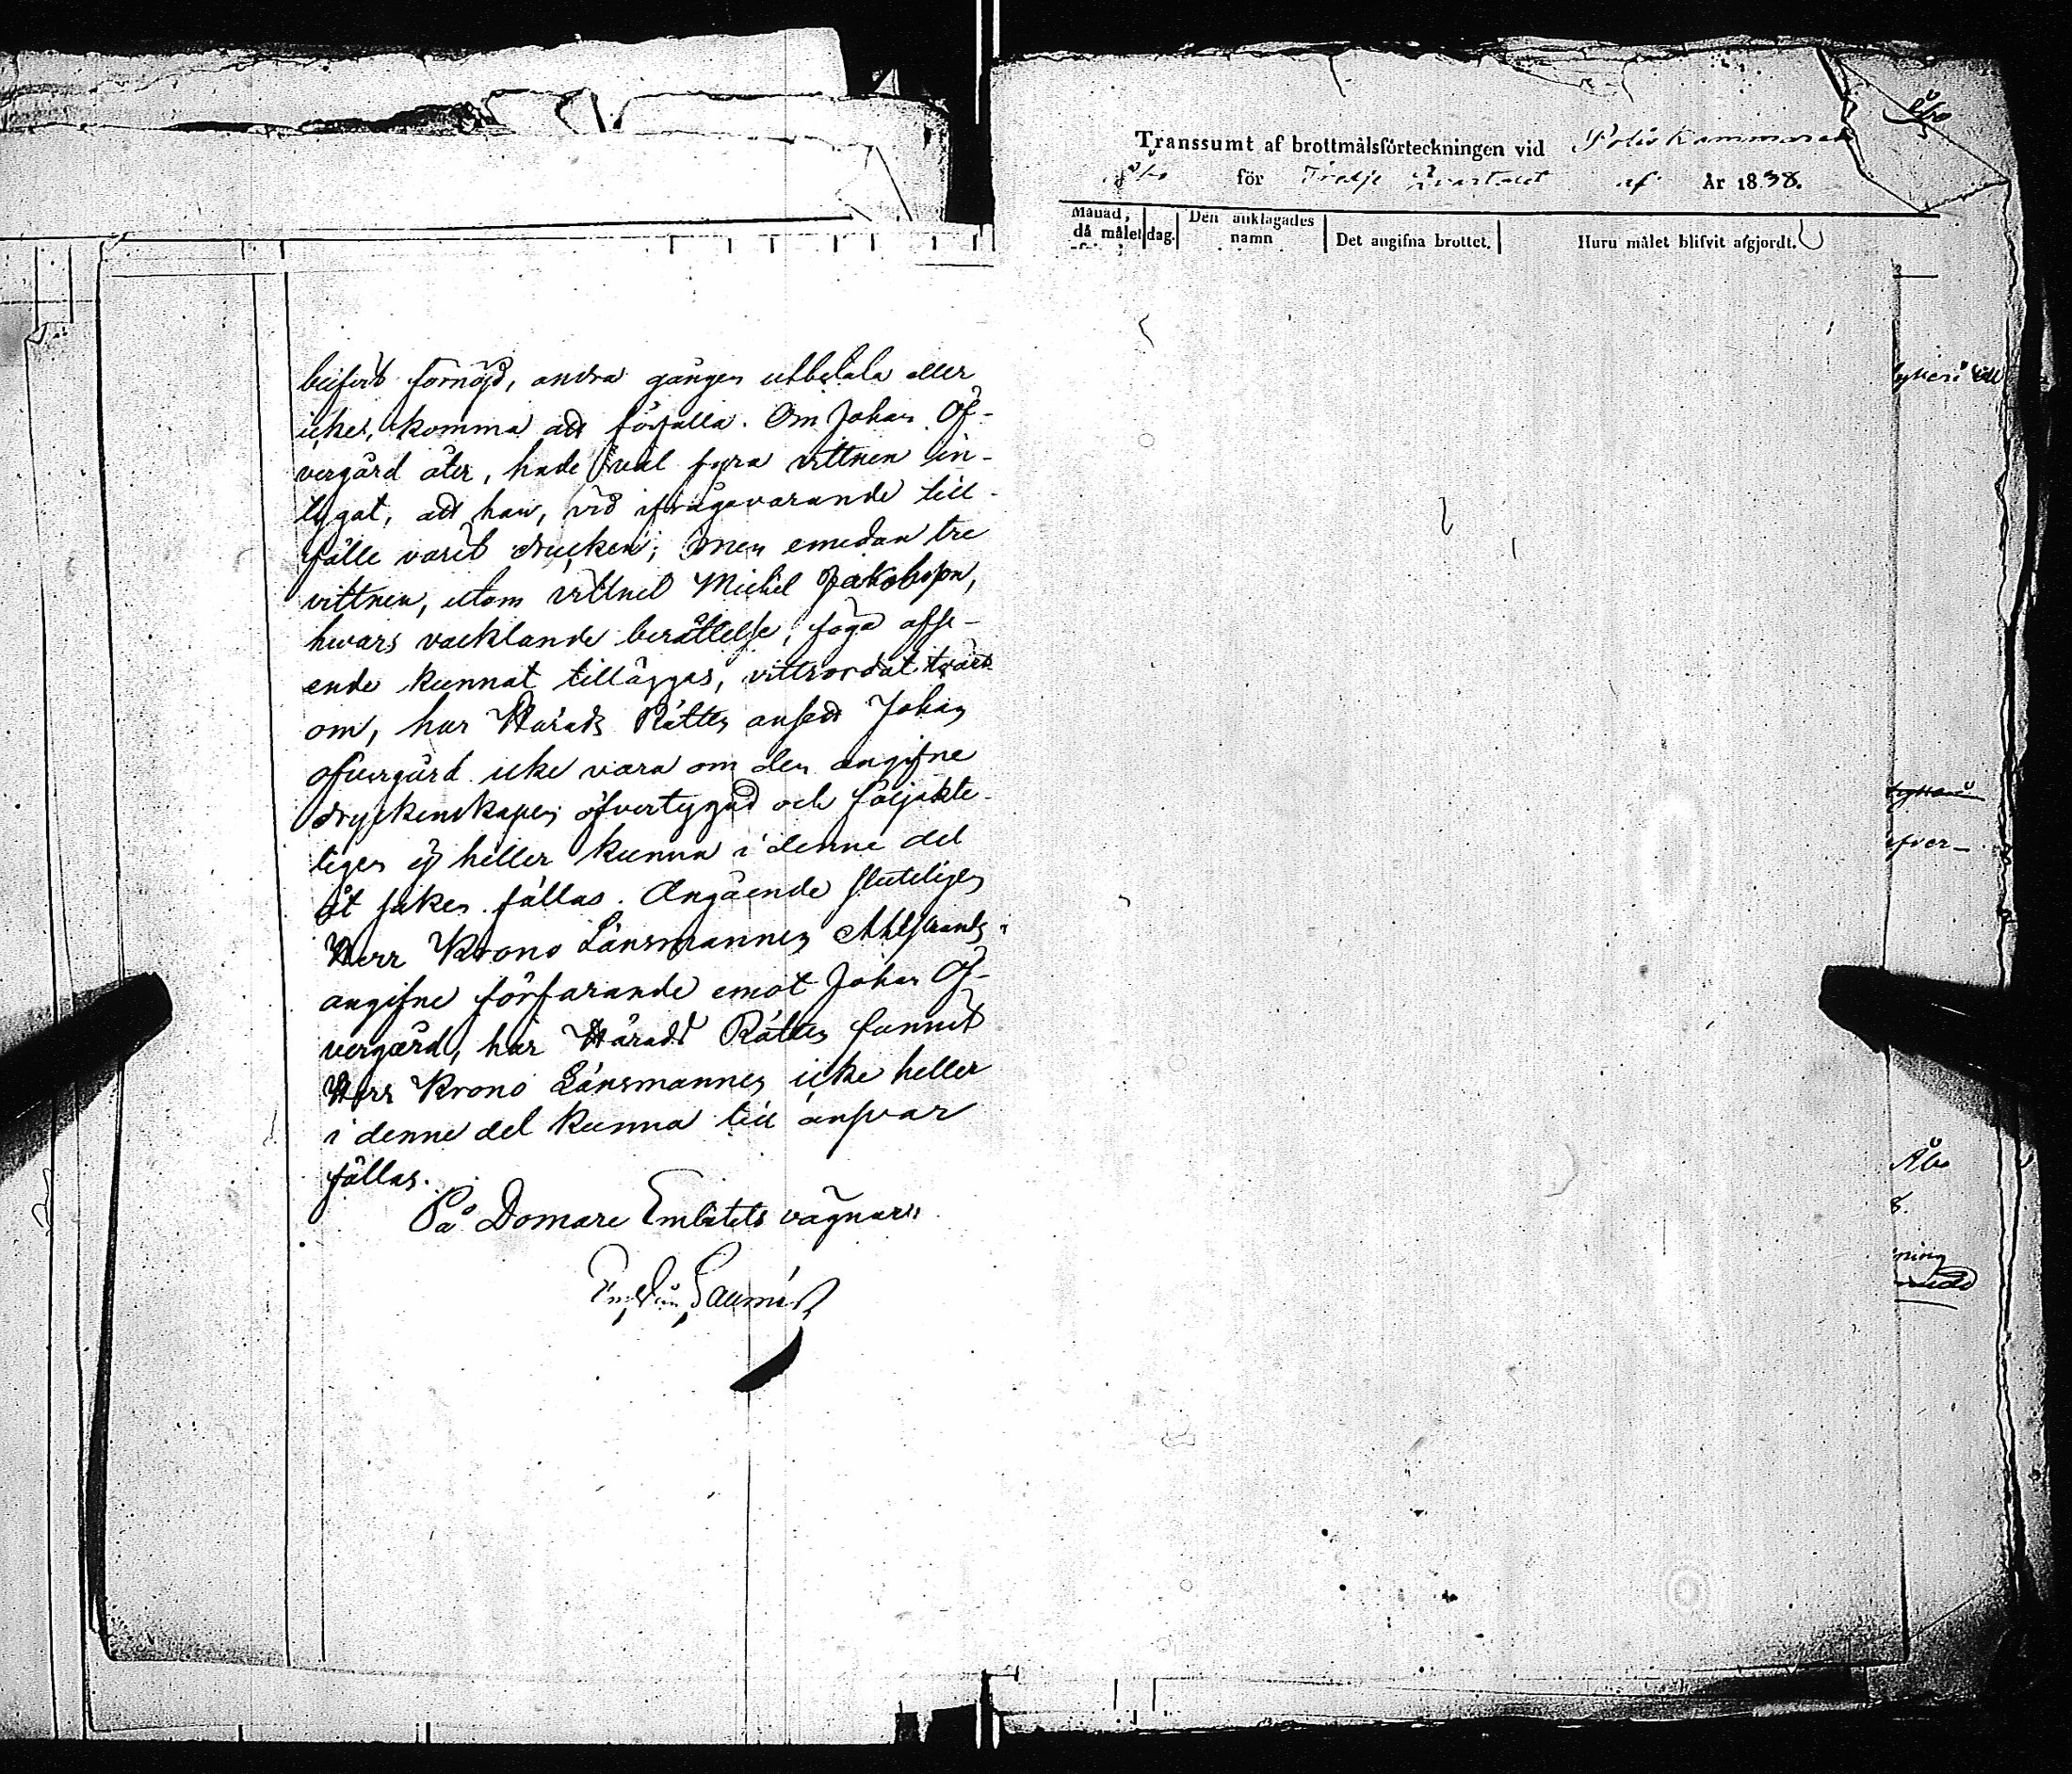 blifvit förnöjd, andra gången utbetala eller
icke, komma att förfalla. Om Johan Öf-
vergård åter, hade väl fyra vittnen in-
tygat, att han, vid ifrågavarande till-
fälle varit drucken; men emedan tre
vittnen, utom vittnet Michel Jakobsson,
hwars vacklande berättelse, föga afse-
ende kunnat tilläggas, vittsordat tvärt-
om, har Härads Rätten ansedt Johan
Öfvergård icke vara om den angifne
dryckenskapen öfvertygad och följakte-
ligen ej heller kunna i denne del
åt saken fällas. Angående slutligen
Herr Krono Länsmannen Ahlstrands
angifne förfarande emot Johan Öf-
vergård, har Härads Rätten funnit
Herr Krono Länsmannen icke heller
i denne del kunna till ansvar
fällas.
På Domare Embetets vägnar:
Transsumt af brottmålsförteckningen vid Poliskammaren
Åbo för Tredje Qvartalet af År 1838.
Månad, då målet | dag. | Den anklagades namn | Det angifna brottet. | Huru målet blifvit afgjordt.
Åbo
öfver-
Åbo
8.
ning